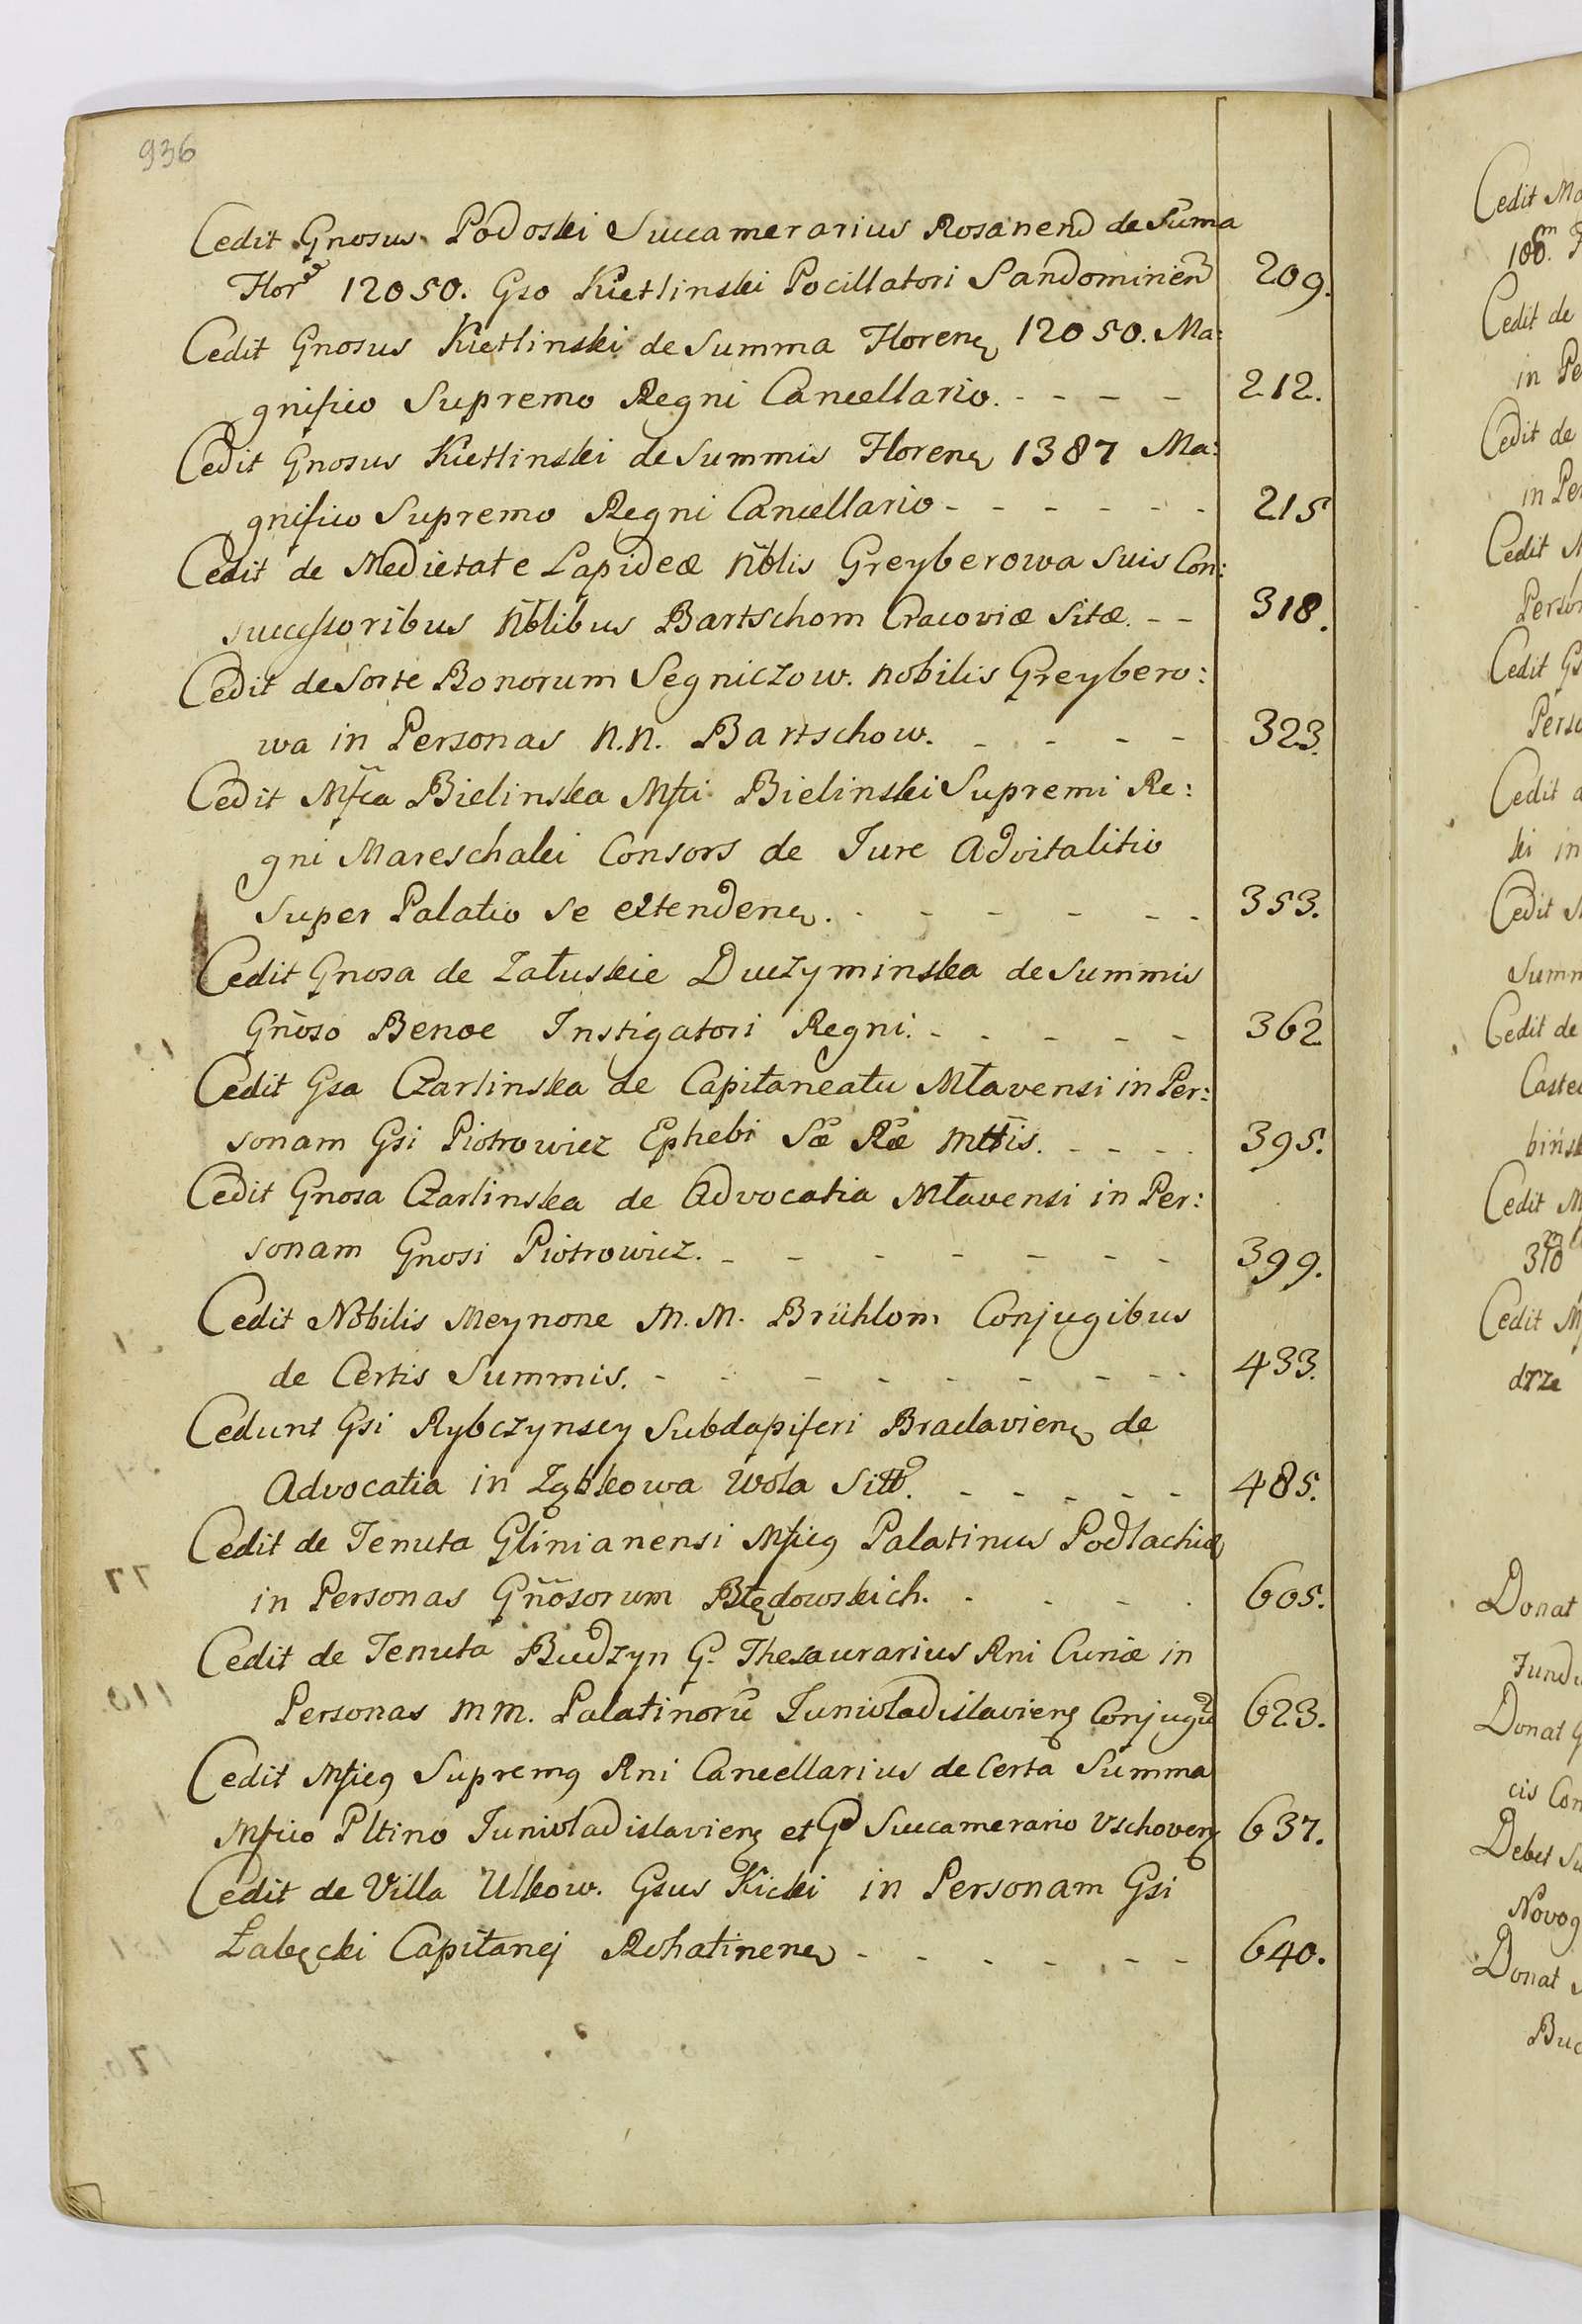 936
Cedit Gnosus Podoski Succamerarius Rosanens de Suma
Flor 12050. Gso Kietlinski Pocillatori Sandomirien 209.
Cedit Gnosus Kietlinski de Summa Floren 12050. Ma:
gnifico Supremo Regni Cancellario. - - - - 212.
Cedit Gnosus Kietlinski de Summis Floren 1387 Ma:
gnifico Supremo Regni Cancellario - - - - - - 215
Cedit de Medietate Lapideæ Nblis Greyberowa Suis Con:
successoribus Nblibus Bartschom Cracoviæ Sitæ. - - 318.
Cedit de Sorte Bonorum Segniczow. nobilis Greybero:
wa in Personas N.N. Bartschow. - - - - 323.
Cedit Mfca Bielinska Mfci Bielinski Supremi Re:
gni Mareschalci Consors de Jure Advitalitio
Super Palatio Se extenden. - - - - - - 353.
Cedit Gnosa de Załuskie Duczyminska de Summis
Gnoso Benoe Instigatori Regni. - - - - - 362
Cedit Gsa Czarlinska de Capitaneatu Mławensi in Per:
sonam Gsi Piotrowicz Ephebi Sæ Ræ Mttis. - - - - 395.
Cedit Gnosa Czarlinska de Advocatia Młavensi in Per:
sonam Gnosi Piotrowicz. - - - - - - - 399.
Cedit Nobilis Meynone M.M. Brühlom Conjugibus
de Certis Summis. - - - - - - - - 433.
Cedunt Gsi Rybczynscy Subdapiferi Braclavien de
Advocatia in Ząbkowa Wola Sitt. - - - - - 485.
Cedit de Tenuta Glinianensi Mficg Palatinus Podlachiæ
in Personas Gnosorum Błędowskich. - - - - 605.
Cedit de Tenuta Budzyn G. Thesaurarius Rni Curiæ in
Personas MM. Palatinorū Juniwladislavien Conjugū 623.
Cedit Mficg Supremg Rni Cancellarius de Certa Summa
Mfico Pltino Juniwladislavien et G Succamerario Vschoven 637.
Cedit de Villa Ulkow. Gsus Kicki in Personam Gsi
Łabęcki Capitanej Rohatinen - - - - - - 640.
Cedit
Cedit de
in Pe
Cedit de
in Per
Cedit M
Person
Cedit Gs
Cedit
Summ
Cedit de
Cedit M
Cedit
Donat
Fund
Donat
cis Con
Debet
Novog
Donat
Buc